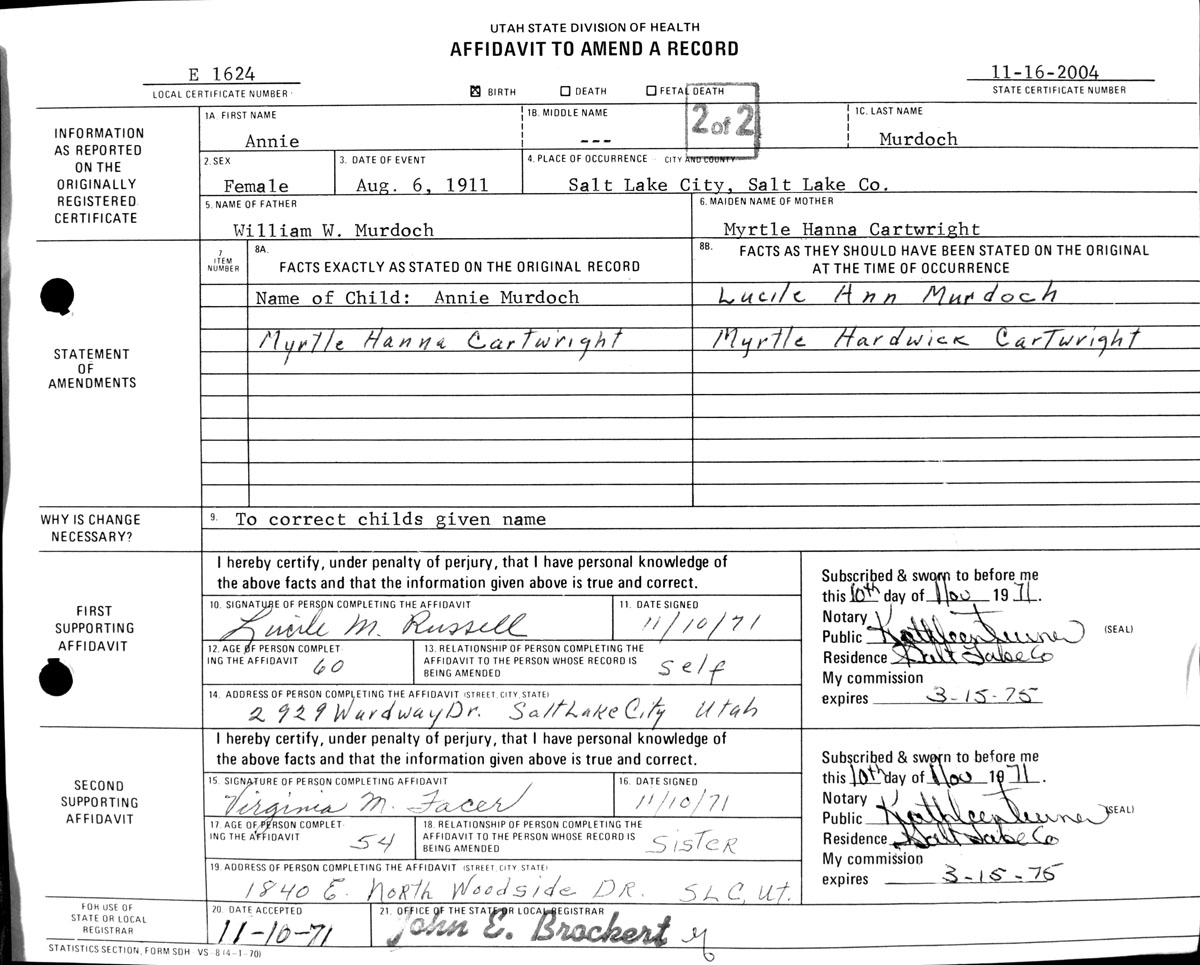 UTAH STATE DIVISION OF HEALTH
AFFIDAVIT TO AMEND A RECORD
E 1624
LOCAL CERTIFICATE NUMBER
☒ BIRTH ☐ DEATH ☐ FETAL DEATH
11-16-2004
STATE CERTIFICATE NUMBER
2 of 2
INFORMATION
AS REPORTED
ON THE
ORIGINALLY
REGISTERED
CERTIFICATE
1A. FIRST NAME
Annie
1B. MIDDLE NAME
---
1C. LAST NAME
Murdoch
2. SEX
Female
3. DATE OF EVENT
Aug. 6, 1911
4. PLACE OF OCCURRENCE - CITY AND COUNTY
Salt Lake City, Salt Lake Co.
5. NAME OF FATHER
William W. Murdoch
6. MAIDEN NAME OF MOTHER
Myrtle Hanna Cartwright
STATEMENT
OF
AMENDMENTS
7
ITEM
NUMBER
8A.
FACTS EXACTLY AS STATED ON THE ORIGINAL RECORD
8B. FACTS AS THEY SHOULD HAVE BEEN STATED ON THE ORIGINAL
AT THE TIME OF OCCURRENCE
Name of Child: Annie Murdoch
Lucile Ann Murdoch
Myrtle Hanna Cartwright
Myrtle Hardwick Cartwright
WHY IS CHANGE
NECESSARY?
9. To correct childs given name
FIRST
SUPPORTING
AFFIDAVIT
I hereby certify, under penalty of perjury, that I have personal knowledge of
the above facts and that the information given above is true and correct.
10. SIGNATURE OF PERSON COMPLETING THE AFFIDAVIT
Lucile M. Russell
11. DATE SIGNED
11/10/71
12. AGE OF PERSON COMPLET-
ING THE AFFIDAVIT 60
13. RELATIONSHIP OF PERSON COMPLETING THE
AFFIDAVIT TO THE PERSON WHOSE RECORD IS
BEING AMENDED
self
14. ADDRESS OF PERSON COMPLETING THE AFFIDAVIT (STREET, CITY, STATE)
2929 Wardway Dr. Salt Lake City Utah
Subscribed & sworn to before me
this 10th day of Nov 1971.
Notary
Public Kathleen (SEAL)
Residence Salt Lake Co
My commission
expires 3-15-75
SECOND
SUPPORTING
AFFIDAVIT
I hereby certify, under penalty of perjury, that I have personal knowledge of
the above facts and that the information given above is true and correct.
15. SIGNATURE OF PERSON COMPLETING AFFIDAVIT
Virginia M. Facer
16. DATE SIGNED
11/10/71
17. AGE OF PERSON COMPLET-
ING THE AFFIDAVIT 54
18. RELATIONSHIP OF PERSON COMPLETING THE
AFFIDAVIT TO THE PERSON WHOSE RECORD IS
BEING AMENDED
Sister
19. ADDRESS OF PERSON COMPLETING THE AFFIDAVIT (STREET, CITY, STATE)
1840 E. North Woodside DR. SLC, Ut.
Subscribed & sworn to before me
this 10th day of Nov 1971.
Notary
Public Kathleen (SEAL)
Residence Salt Lake Co
My commission
expires 3-15-75
FOR USE OF
STATE OR LOCAL
REGISTRAR
20. DATE ACCEPTED
11-10-71
21. OFFICE OF THE STATE OR LOCAL REGISTRAR
John E. Brockert
STATISTICS SECTION, FORM SDH - VS - 8 (4-1-70)